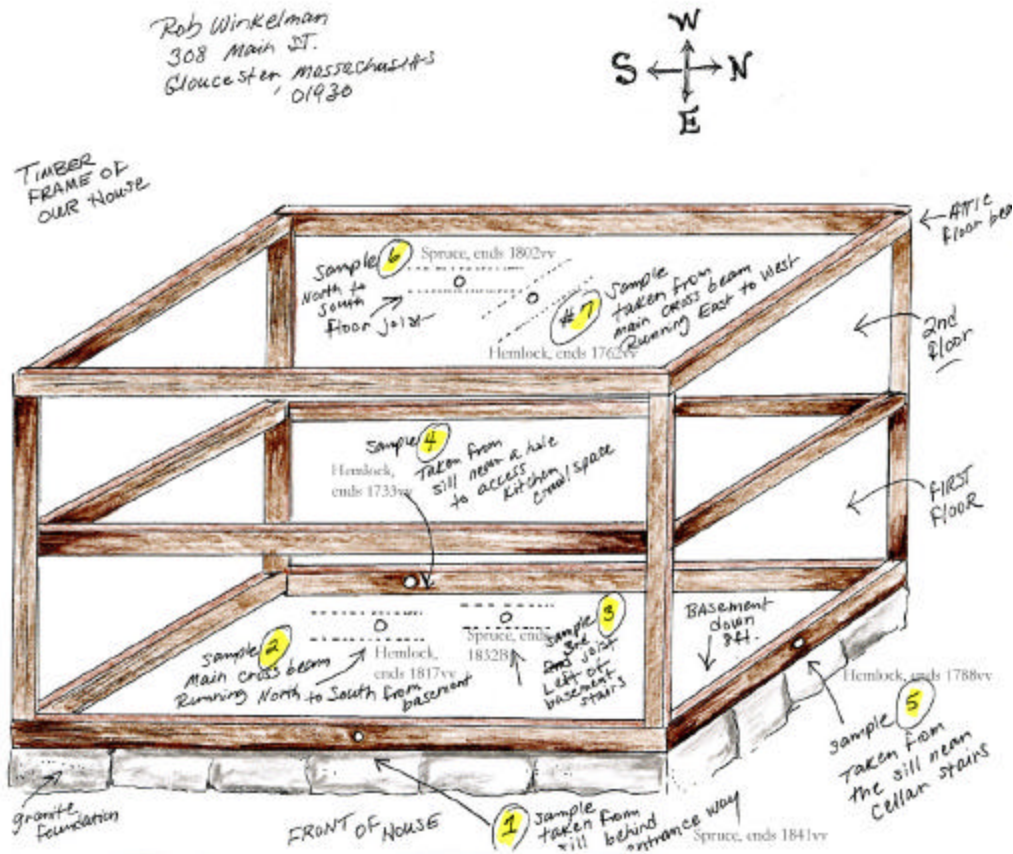 Rob Winkelman
308 Main ST.
Gloucester, Massachusetts
01930
W
S N
E
TIMBER
FRAME OF
OUR House
ATTIC
floor bea
sample 6
North to
south
floor joist
Spruce, ends 1802vv
#7 sample
taken from
main cross beam
Running East to West
Hemlock, ends 1762vv
2nd
floor
sample 4
Taken from
sill near a hole
to access
kitchen
crawl space
Hemlock,
ends 1733vv
FIRST
FLOOR
sample 2
Main cross beam
Running North to South from
basement
Hemlock,
ends 1817vv
Spruce, ends
1832B
sample 3
3rd
joist
Left of
basement
stairs
BASEMENT
down
8ft.
Hemlock, ends 1788vv
sample 5
Taken from
the sill near
Cellar stairs
granite
foundation
FRONT OF HOUSE
1 sample
taken from
sill behind
entrance way
Spruce, ends 1841vv